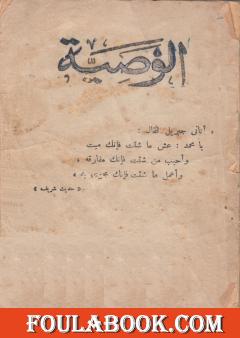 الوصية
« أتاني جبريل فقال :
يا محمد : عش ما شئت فإنك ميت
وأحبب من شئت فإنك مفارقه
وأعمل ما شئت فإنك مجزي به
« حديث شريف »
FOULABOOK.COM